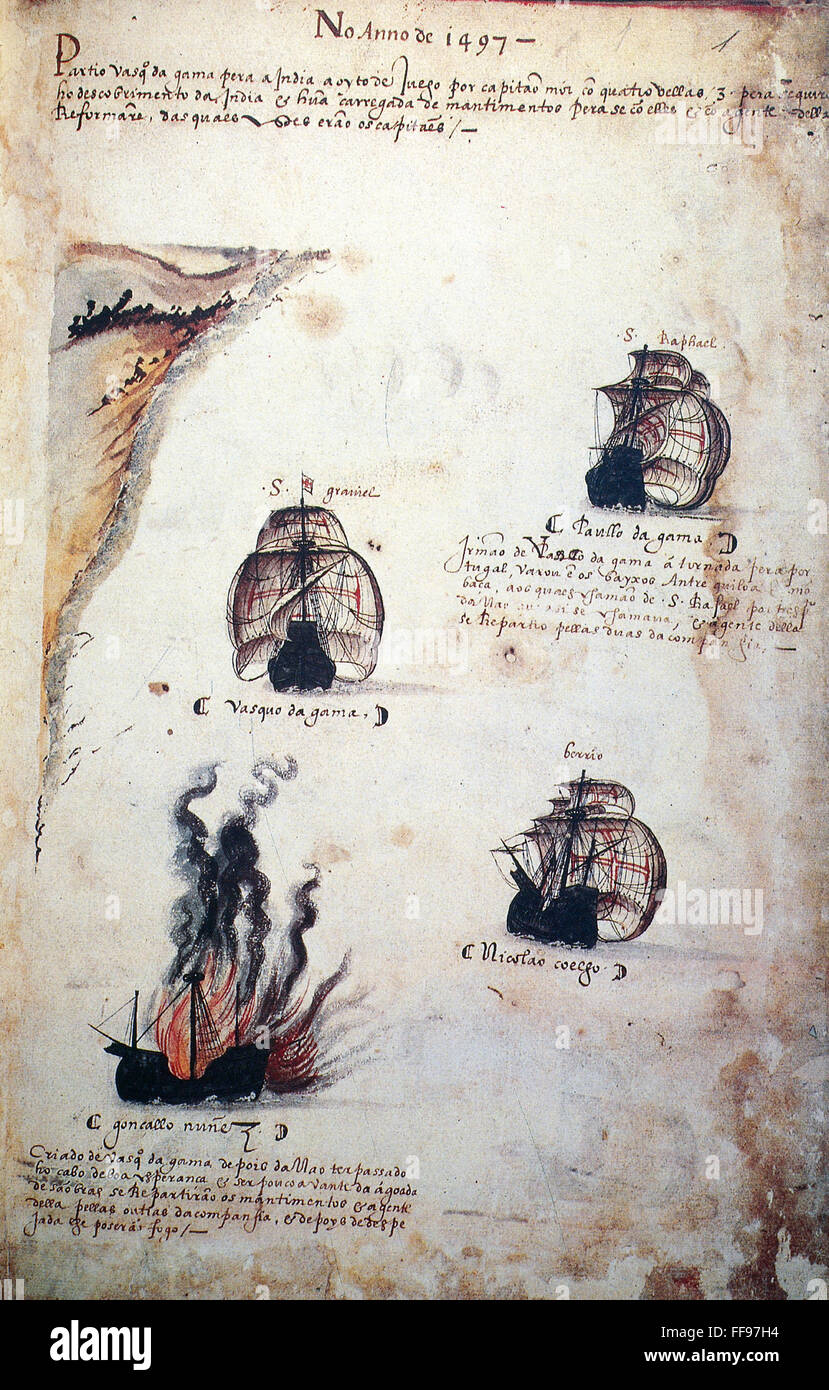 No Anno de 1497 —
1 1
Partio Vasq̃o da gama pera a India a oyto de Iuego por capitaõ mòr cõ quatro vellas, 3. pera
ho descobrimento da India & huã carregada de mantimentos pera se cõ elles & cõ a gente della
Reformarẽ, das quaes erão os capitães /—
S. Raphael.
.S. graviel
( Paullo da gama. )
Irmão de Vasco da gama á tornada pera por
tugal, varou ẽ os bayxos Antre quiloa & mo
baça, aos quaes chamão de .S. Rafael por
da Nao se chamava, & a gente della
se Repartio pellas duas da companhia. —
( Vasquo da gama. )
berrio
( Nicolao coelho. )
( gonçallo nuñez. )
Criado de Vasq̃o da gama depois da Nao ter passado
ho cabo de boa Esperança & ser pouco a vante da ágoada
de são bras, se Repartirão os mantimentos & a gente
della pellas outras da companhia, & depoys de despe
jada lhe poserão fogo /—
alamy
alamy
alamy
alamy
alamy
a
a
a
a
alamy
Image ID: FF97H4
www.alamy.com